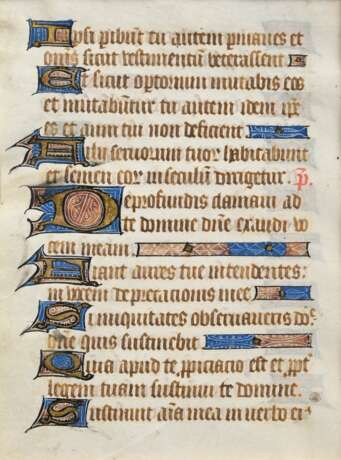 Ipsi peribunt tu autem pmanes et
om̄s sicut vestimentum veterascent
Et sicut optorium mutabis eos
et mutabūtur tu autem idem ip̄e
es et anni tui non deficient
Filii seruorum tuor habitabunt
et semen eor in seculum dirigetur. p̄.
De profundis clamaui ad
te domine dn̄e exaudi vo
cem meam
Fiant aures tue intendentes:
in vocem deprecacionis mee.
Si iniquitates obseruaueris do
ne quis sustinebit
Quia apud te ppiciacio est et ppt
legem tuam sustinui te domine.
Sustinuit aīa mea in verbo ei